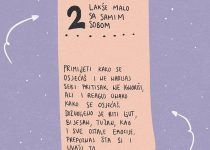 2
LAKŠE MALO
SA SAMIM
SOBOM
PRIMIJETI KAKO SE
OSJEĆAŠ I NE NABIJAJ
SEBI PRITISAK. NE IGNORIŠI,
ALI I REAGUJ ONAKO
KAKO SE OSJEĆAŠ.
DOZVOLJENO JE BITI LJUT,
BIJESAN, TUŽAN, KAO
I SVE OSTALE EMOCIJE.
PREPOZNAJ ŠTA SI I
UVAŽI TO